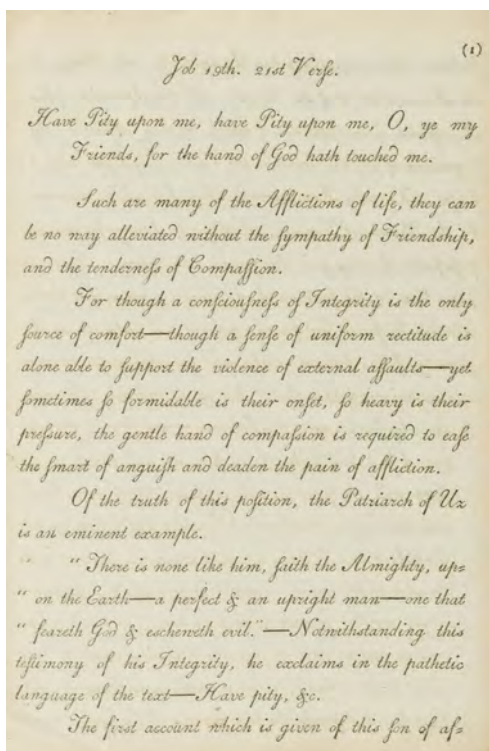 (1)
Job 19th. 21st Verſe.
Have Pity upon me, have Pity upon me, O, ye my
Friends, for the hand of God hath touched me.
Such are many of the Afflictions of life, they can
be no way alleviated without the ſympathy of Friendſhip,
and the tenderneſs of Compaſſion.
For though a conſciouſneſs of Integrity is the only
ſource of comfort—though a ſenſe of uniform rectitude is
alone able to ſupport the violence of external aſſaults—yet
ſometimes ſo formidable is their onſet, ſo heavy is their
preſsure, the gentle hand of compaſsion is required to eaſe
the ſmart of anguiſh and deaden the pain of affliction.
Of the truth of this poſition, the Patriarch of Uz
is an eminent example.
"There is none like him, ſaith the Almighty, up=
" on the Earth—a perfect & an upright man—one that
" feareth God & escheweth evil."—Notwithstanding this
teſtimony of his Integrity, he exclaims in the pathetic
language of the text—Have pity, &c.
The firſt account which is given of this ſon of af=